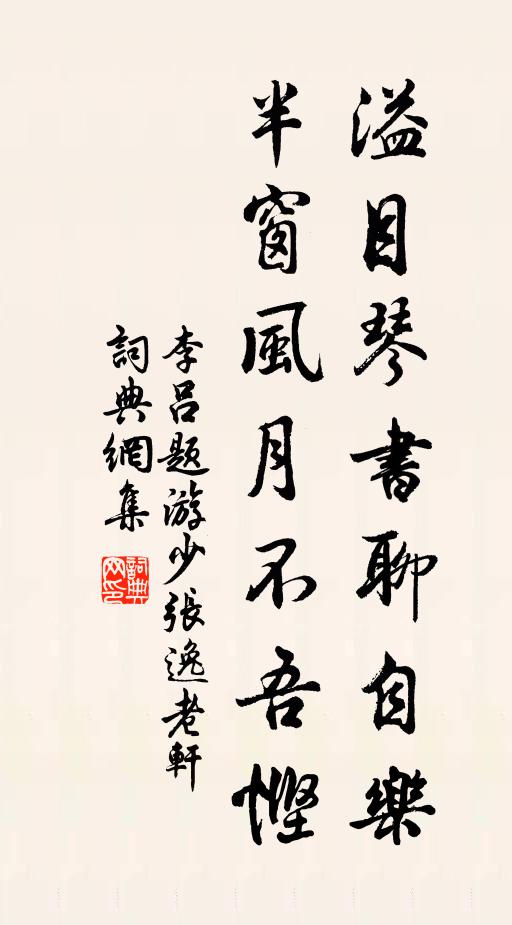 溢目琴書聊自樂
半窗風月不吾慳
李呂題游少張逸老軒
詞典網集
詞典網印